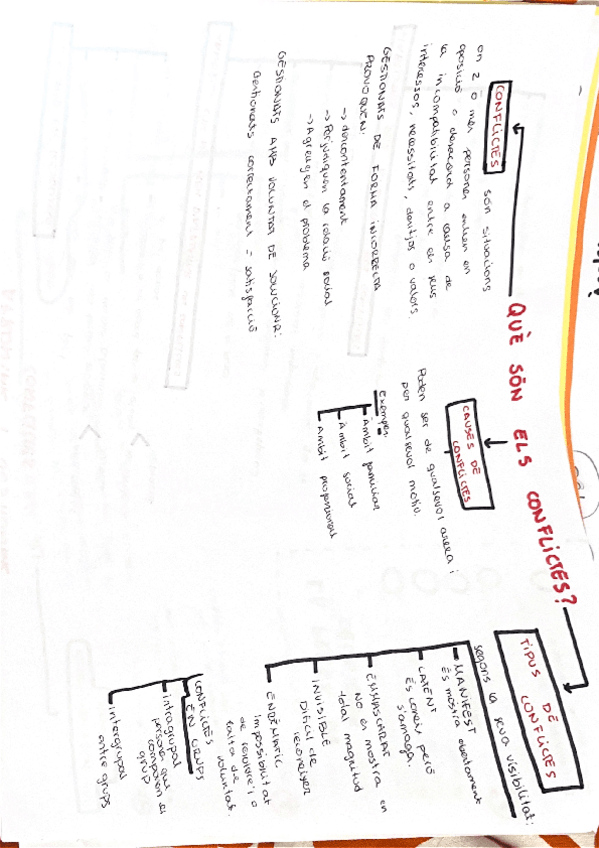 QUÈ SÓN ELS CONFLICTES?
CONFLICTES són situacions
on 2 o més persones entren en
oposició o desacord a causa de
la incompatibilitat entre els seus
interessos, necessitats, desitjos o valors.
GESTIONATS DE FORMA INCORRECTA
PROVOQUEN:
-> descontentament
-> Perjudiquen la relació social
-> Agreugen el problema
GESTIONATS AMB VOLUNTAT DE SOLUCIONAR:
Gestionats correctament = satisfacció
CAUSES DE
CONFLICTES
Poden ser de qualsevol àrea i
per qualsevol motiu.
Exemples
Àmbit familiar
Àmbit social
Àmbit professional
TIPUS DE
CONFLICTES
segons la seva visibilitat:
MANIFEST
és mostra obertament
LATENT
És coneix però
s'amaga.
EMMASCARAT
NO es mostra en
total magnitud
INVISIBLE
Difícil de
reconeixer
ENDÈMIC
impossibilitat
de resoldre'l o
falta de
voluntat.
CONFLICTES
EN GRUPS
intragrupal
persones que
comparteixen
grup
intergrupal
entre grups